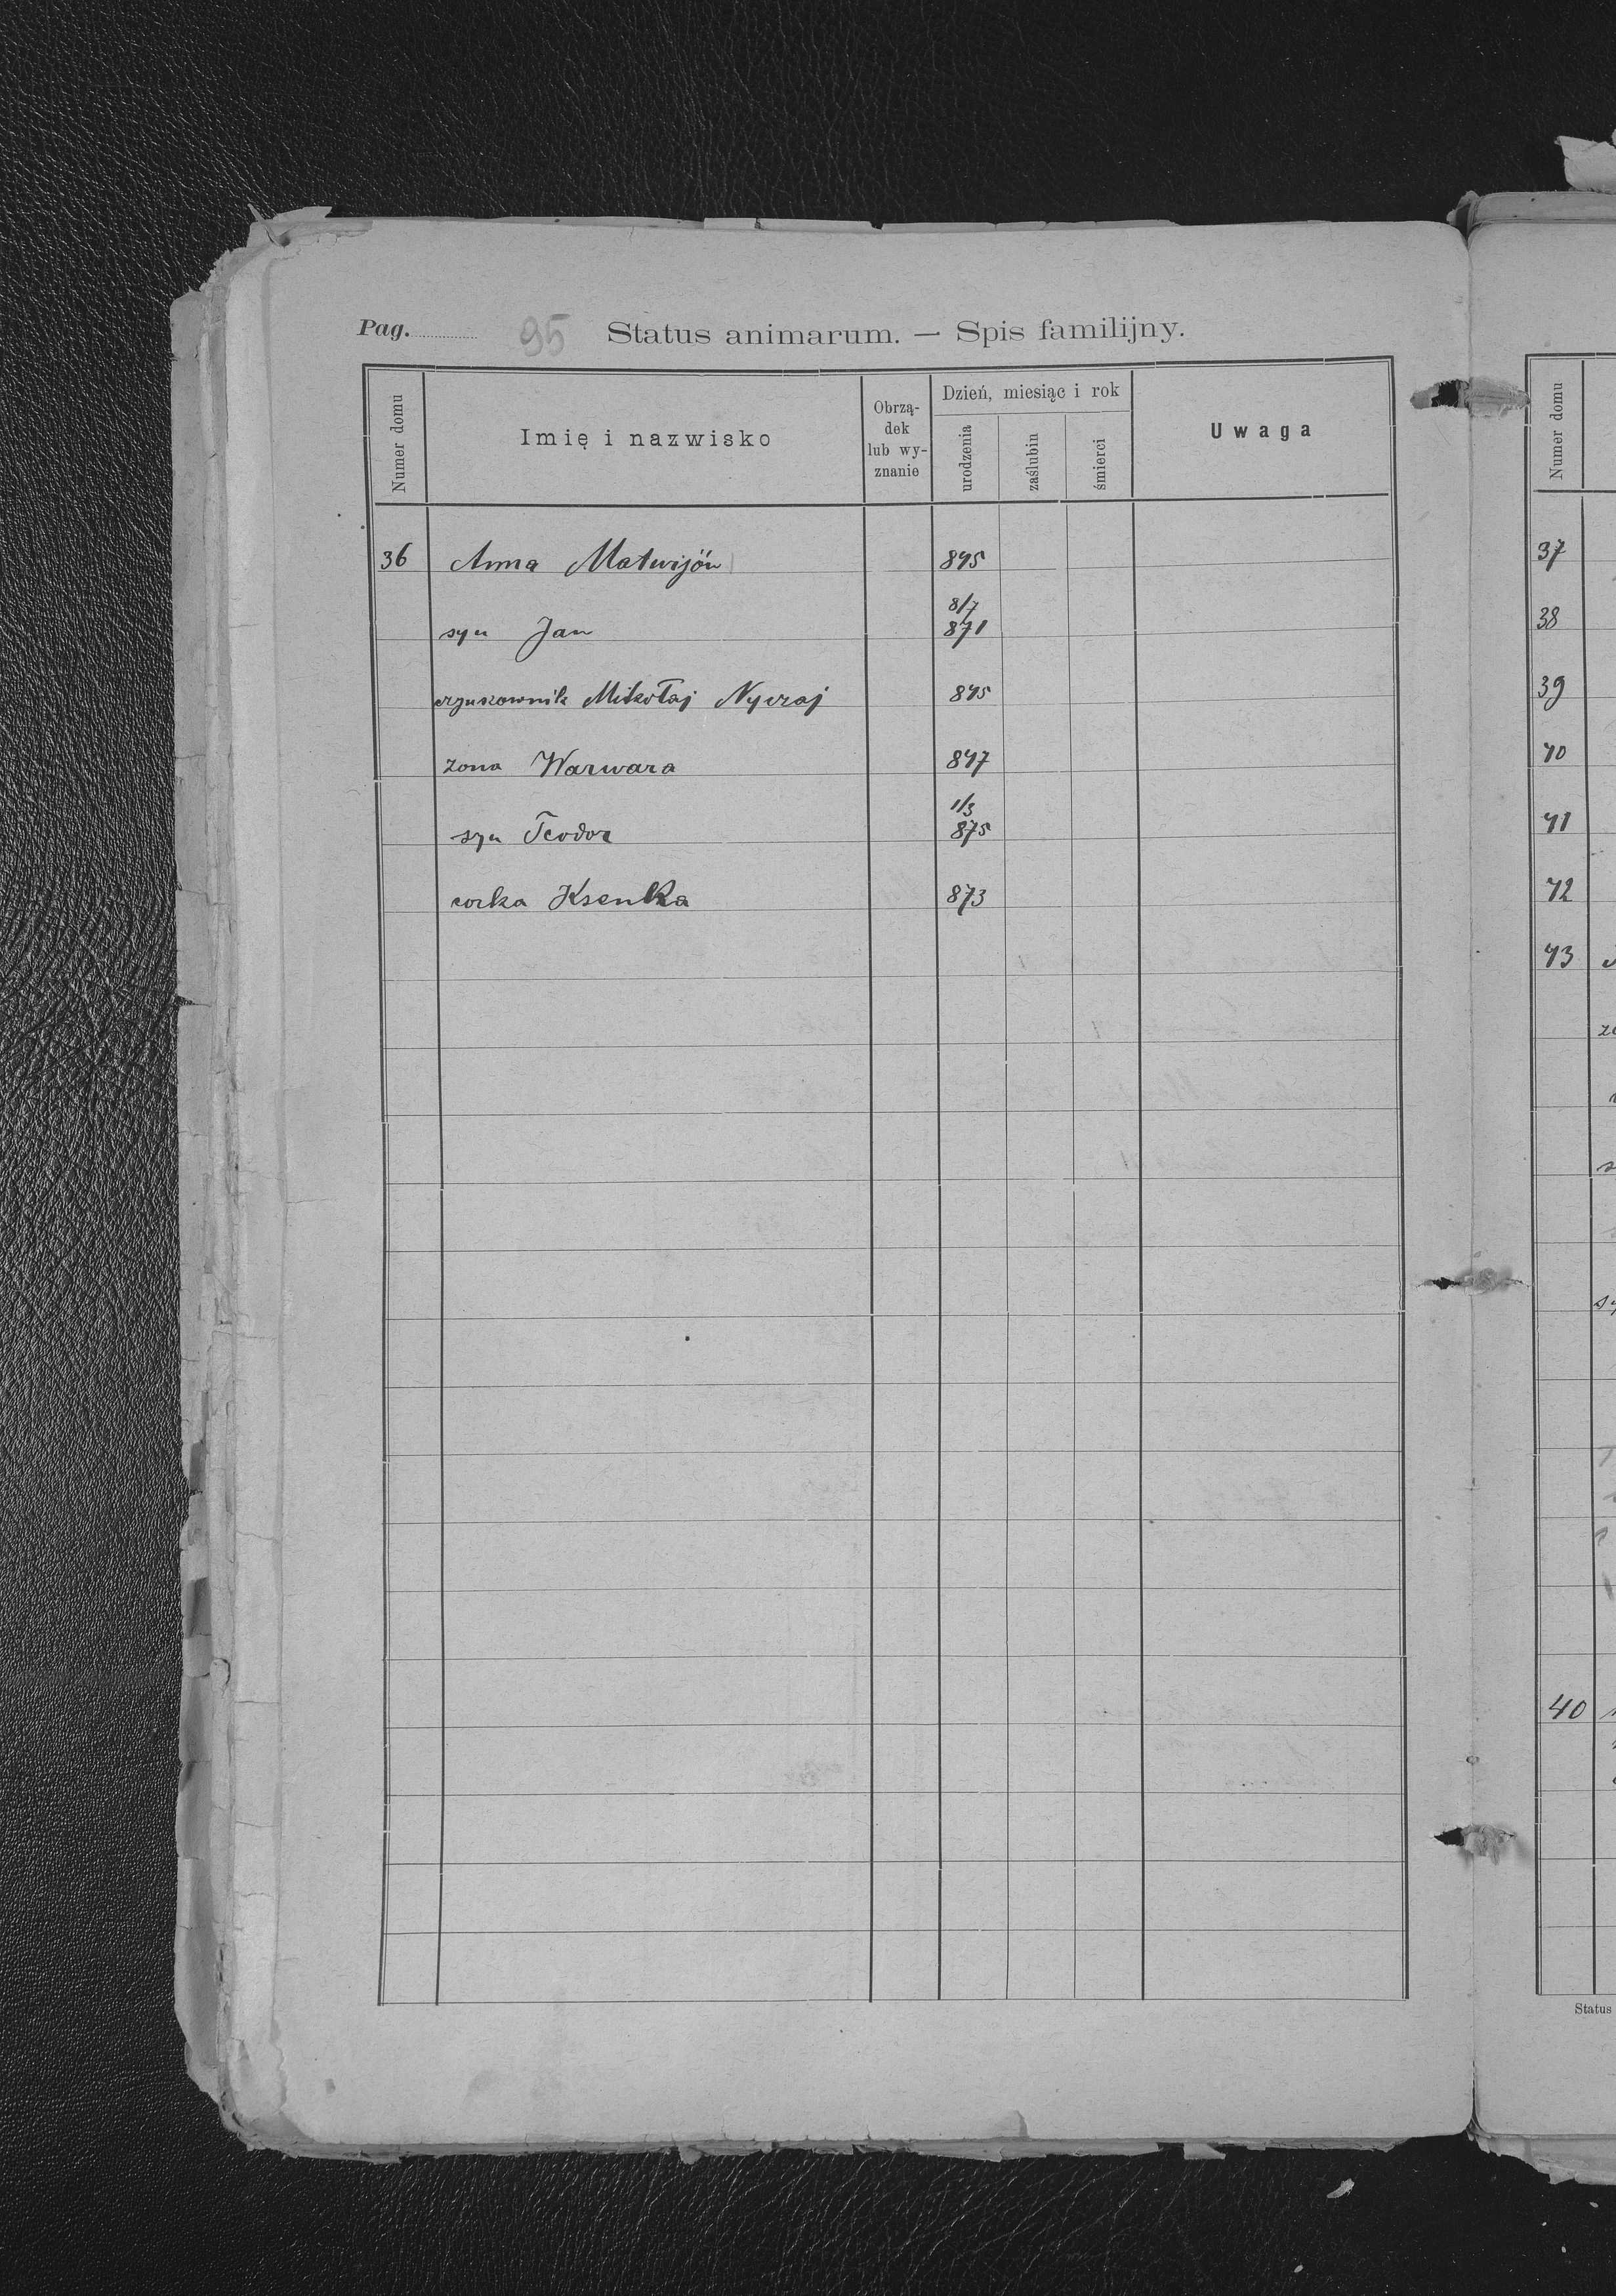 Pag. 95 Status animarum. — Spis familijny.
Numer domu
Imię i nazwisko
Obrzą-
dek
lub wy-
znanie
Dzień, miesiąc i rok
urodzenia
zaślubin
śmierci
Uwaga
36 Anna Matwijów 845
8/7
syn Jan 871
Mikołaj Nyczaj 845
zona Warwara 847
1/3
syn Teodor 875
corka Ksenka 873
Numer domu
37
38
39
40
41
42
43
40
Status